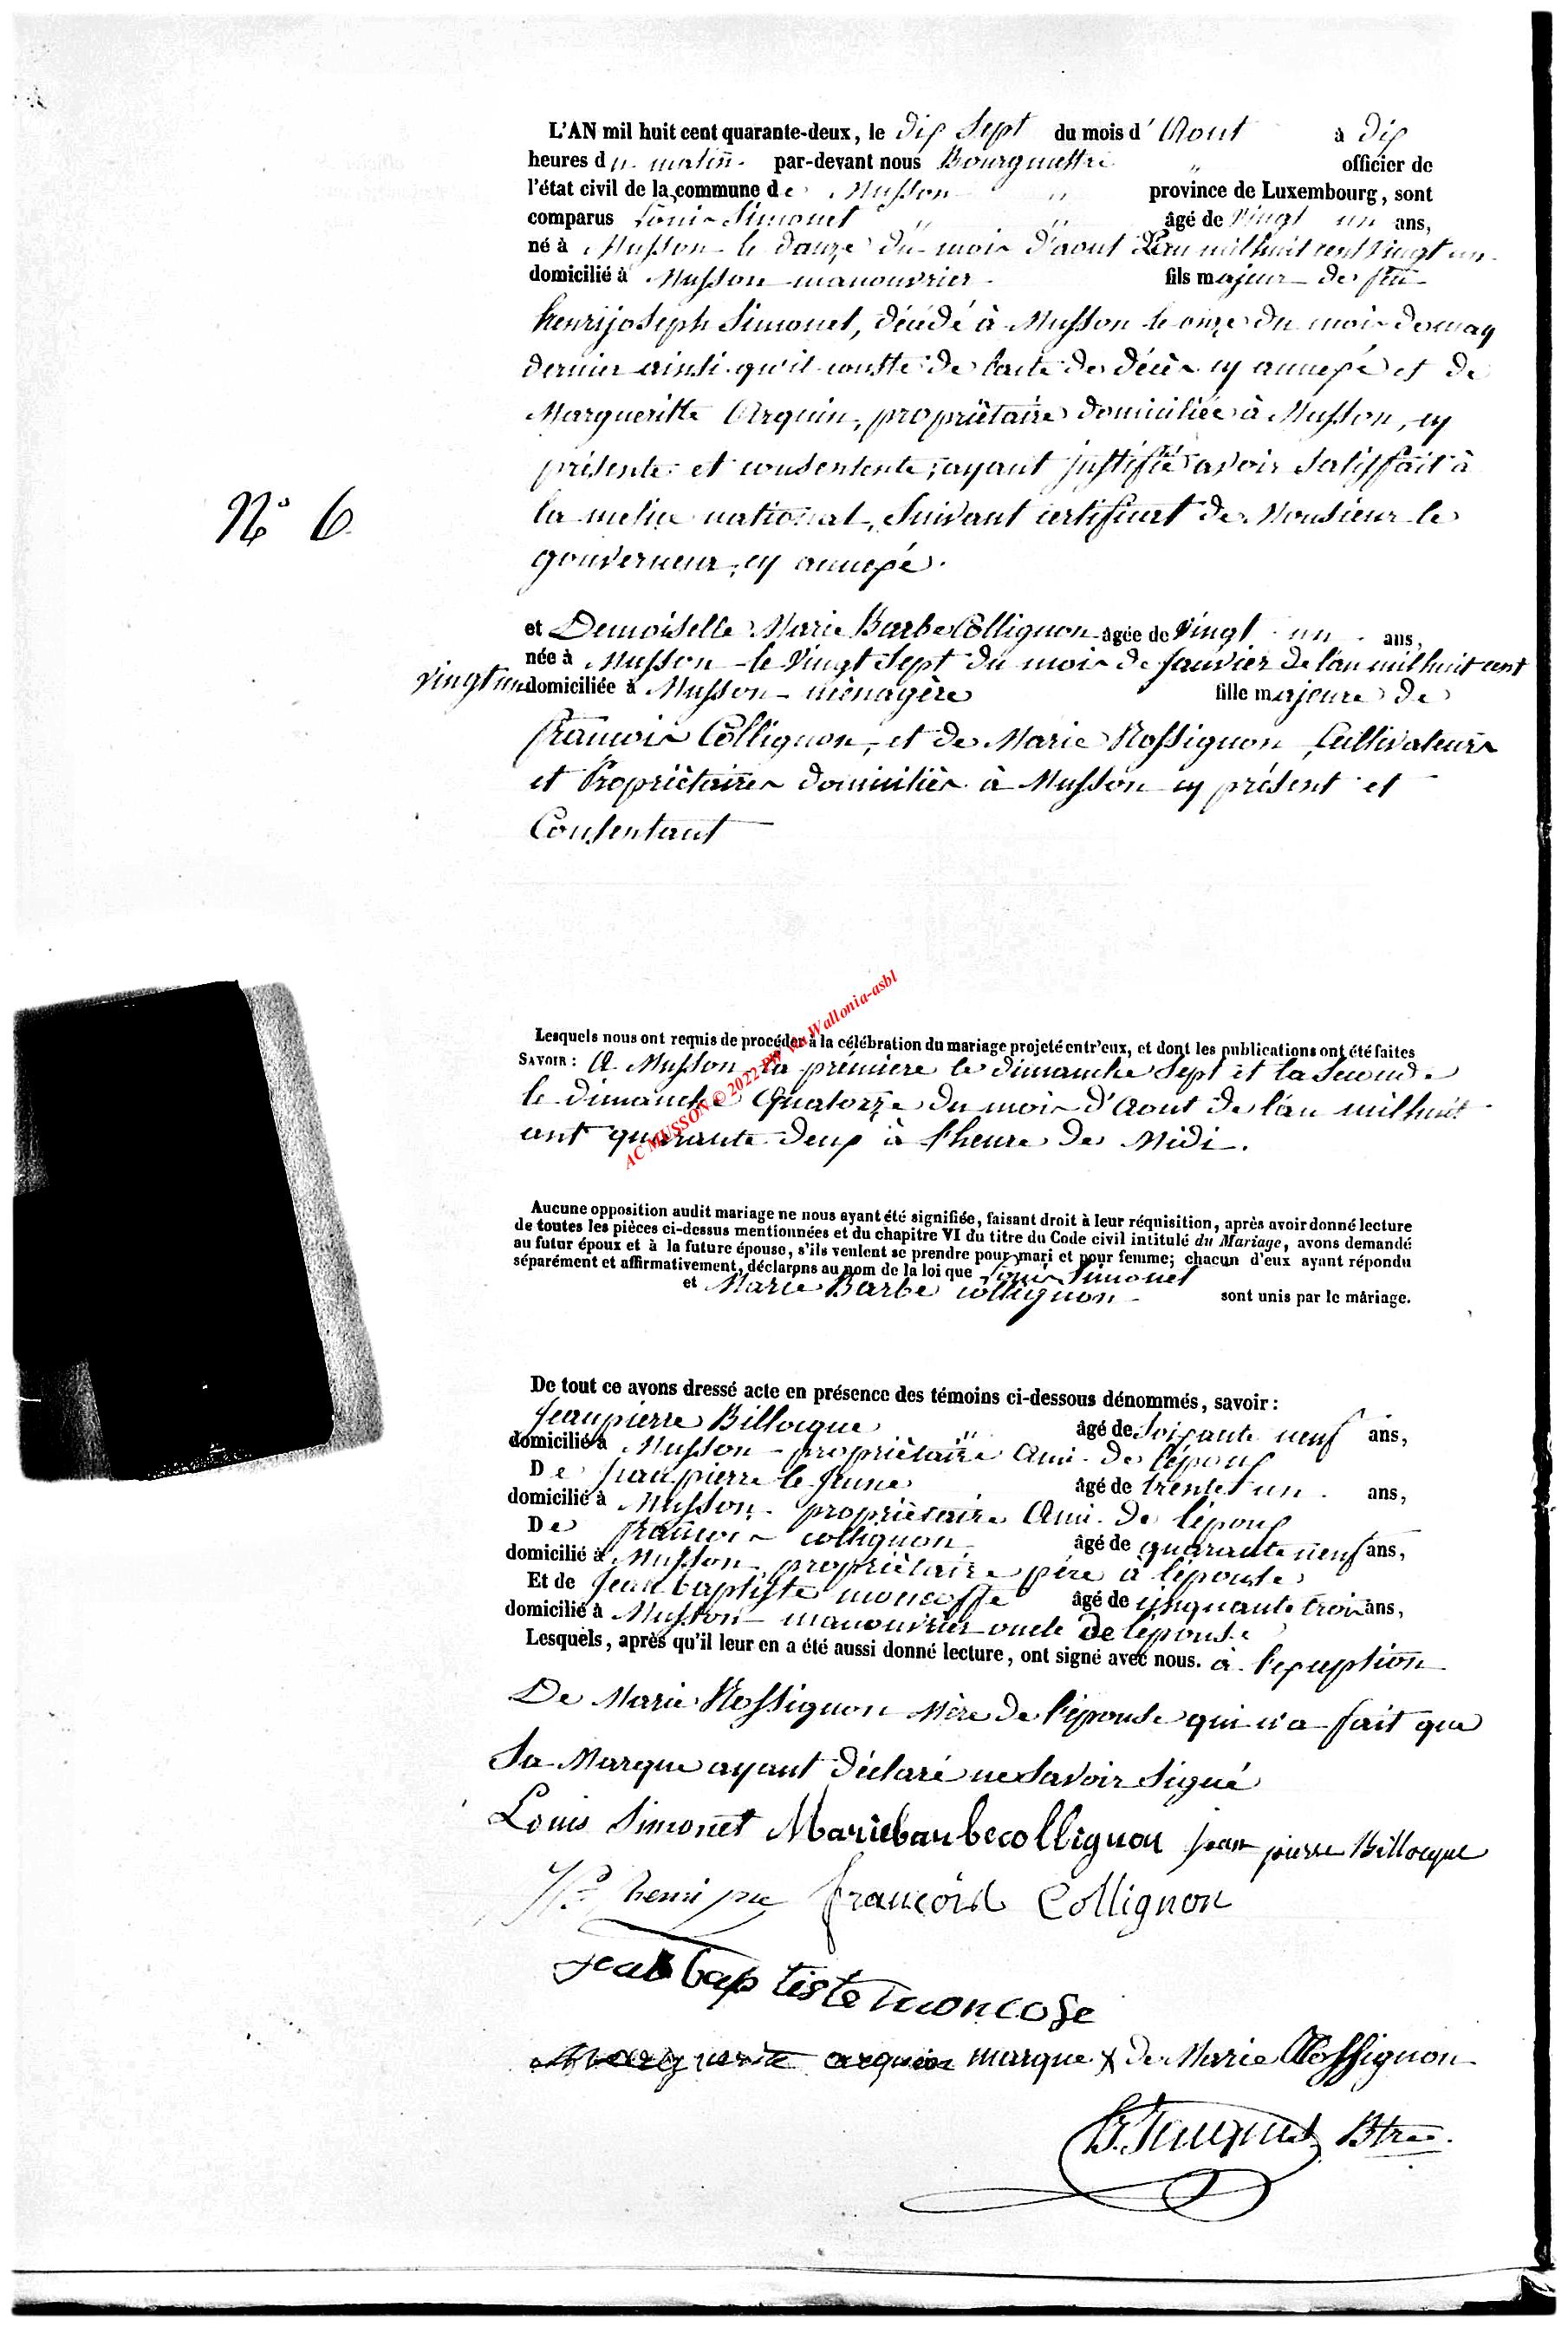 L'AN mil huit cent quarante-deux, le dix Sept du mois d'Aout à dix
heures du matin par-devant nous Bourgmettre " officier de
l'état civil de la commune de Musson " province de Luxembourg, sont
comparus Louis Simonet " " âgé de Vingt un ans,
né à Musson le douze du mois d'aout de l'an mil huit cent Vingt un
domicilié à Musson manouvrier fils majeur de feu
henrijoseph Simonet, décédé à Musson le onze du mois de may
dernier ainsi qu'il conste de l'acte de décès cy annexé et de
Margueritte Arquin, propriétaire domiciliée à Musson, cy
présente et consentente, ayant justifié avoir satisffait à
la milice national, Suivant certificat de Monsieur le
gouverneur, cy annexé.
N° 6
et Demoiselle Marie Barbe Collignon agée de Vingt un ans,
née à Musson le Vingt Sept du mois de Janvier de l'an mil huit cent
vingt un domiciliée à Musson ménagère fille majeure de
francois Collignon, et de Marie Rossignon Cultivateurs
et Propriétaires domiciliés à Musson cy présent et
Consentant
Lesquels nous ont requis de procéder à la célébration du mariage projeté entr'eux, et dont les publications ont été faites
SAVOIR : A Musson la première le dimanche Sept et la Seconde
le dimanche Quatorze du mois d'Aout de l'an mil huit
cent quarante deux à l'heure de Midi.
AC MUSSON © 2022 PW via Wallonia-asbl
Aucune opposition audit mariage ne nous ayant été signifiée, faisant droit à leur réquisition, après avoir donné lecture
de toutes les pièces ci-dessus mentionnées et du chapitre VI du titre du Code civil intitulé du Mariage, avons demandé
au futur époux et à la future épouse, s'ils veulent se prendre pour mari et pour femme; chacun d'eux ayant répondu
séparément et affirmativement, déclarons au nom de la loi que Louis Simonet
et Marie Barbe Collignon sont unis par le mariage.
De tout ce avons dressé acte en présence des témoins ci-dessous dénommés, savoir :
Jeanpierre Billocque " âgé de Soixante neuf ans,
domicilié à Musson propriétaire Ami de l'époux
De Jeanpierre le Jeune âgé de trente un ans,
domicilié à Musson propriétaire Ami de l'époux
De francois collignon âgé de quarante neuf ans,
domicilié à Musson propriétaire père à l'épouse
Et de Jean baptiste moncoffe âgé de cinquante trois ans,
domicilié à Musson manouvrier oncle de l'épouse
Lesquels, après qu'il leur en a été aussi donné lecture, ont signé avec nous. à l'exception
De Marie Rossignon Mère de l'épouse qui n'a fait que
Sa Marque ayant déclaré ne Savoir Signé
Louis Simonet Mariebarbecollignon jean pierre Billocque
francois Collignon
jean baptiste moncofe
Marguerite arquin marque X de Marie Rossignon
Btre.